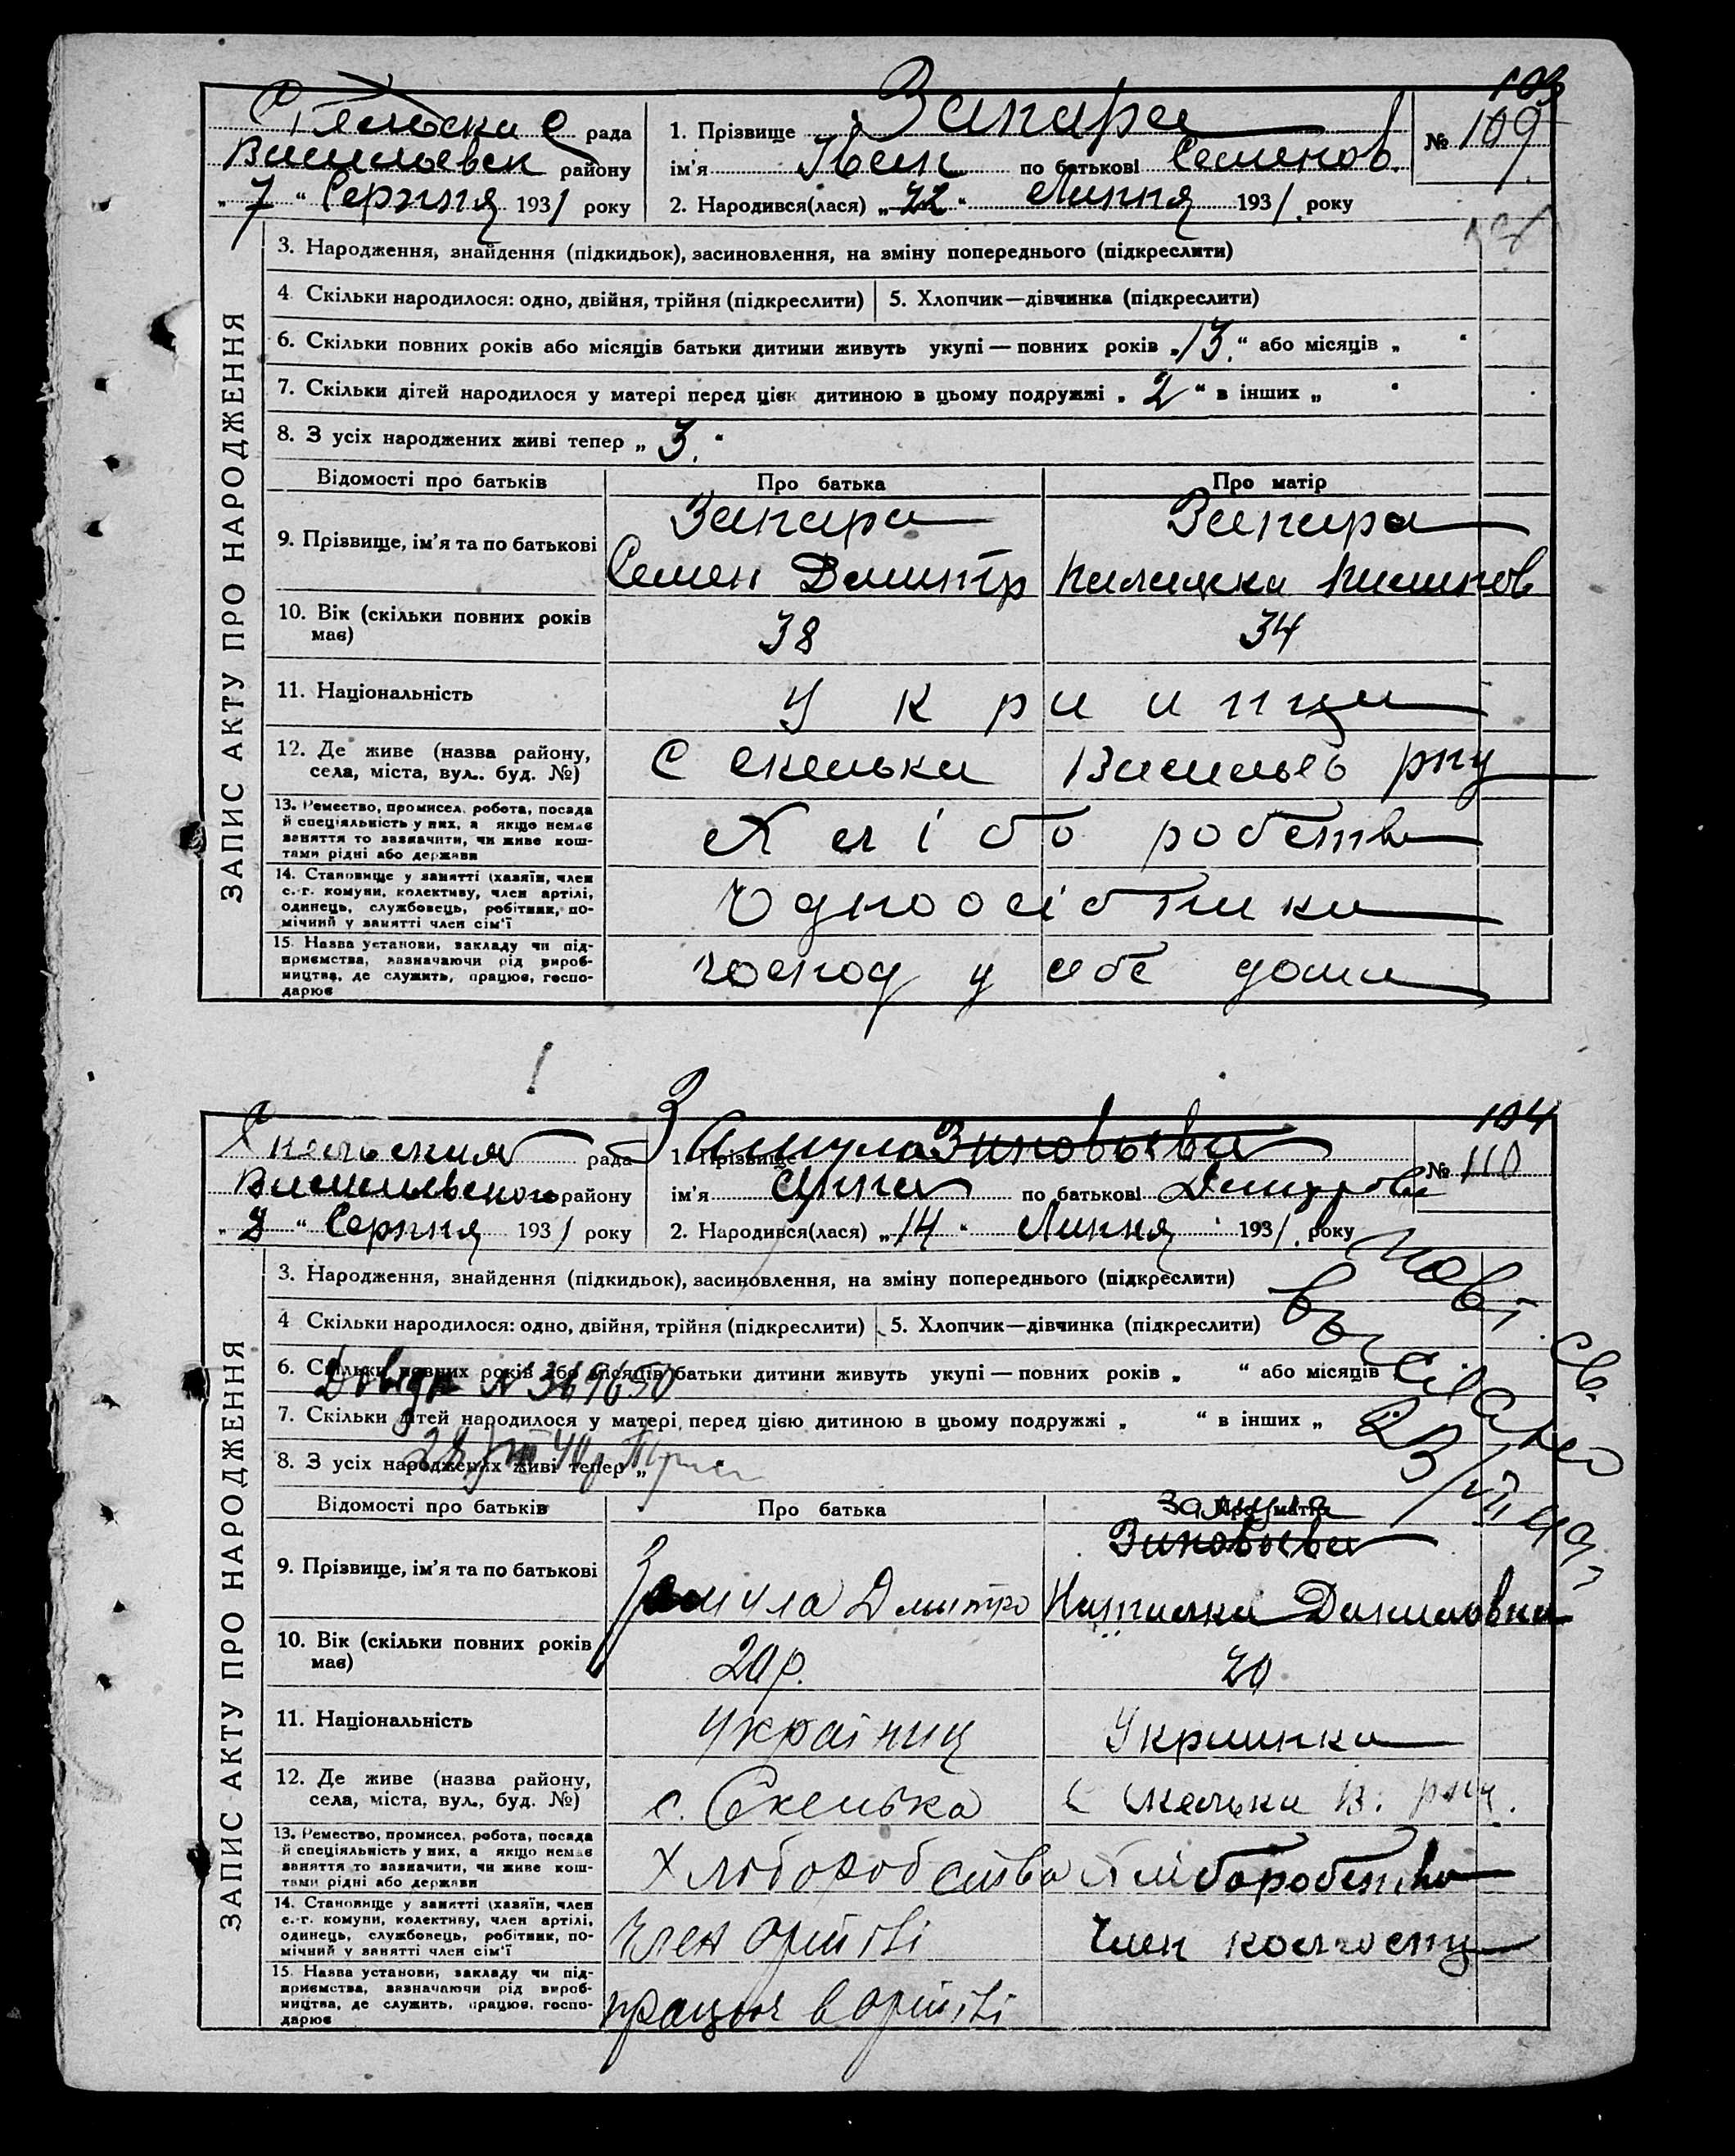 103
рада
1. Прізвище Запара
№ 109
Васильевск району
ім'я Іван по батькові Семенов.
„ 7 “ Серпня 1931 року
2. Народився(лася) „ 22 “ Липня 1931. року
ЗАПИС АКТУ ПРО НАРОДЖЕННЯ
3. Народження, знайдення (підкидьок), засиновлення, на зміну попереднього (підкреслити)
4. Скільки народилося: одно, двійня, трійня (підкреслити) 5. Хлопчик—дівчинка (підкреслити)
6. Скільки повних років або місяців батьки дитини живуть укупі — повних років „ 13. “ або місяців „ “
7. Скільки дітей народилося у матері перед цією дитиною в цьому подружжі „ 2 “ в інших „ “
8. З усіх народжених живі тепер „ 3. “
Відомості про батьків Про батька Про матір
9. Прізвище, ім'я та по батькові
Запара Запара
Семен Дмитр
10. Вік (скільки повних років має) 38 34
11. Національність Українци
12. Де живе (назва району, села, міста, вул., буд. №)
С Скельки Васильев рну
13. Ремество, промисел, робота, посада
й спеціяльність у них, а якщо немає
заняття то зазначити, чи живе кош-
тами рідні або держави
Хлібо робство
14. Становище у занятті (хазяїн, член
с.-г. комуни, колективу, член артілі,
одинець, службовець, робітник, по-
мічний у занятті член сім'ї
Одноосібники
15. Назва установи, закладу чи під-
приємства, зазначаючи рід вироб-
ництва, де служить, працює, госпо-
дарює
господ у себе дома
104
рада
1. Прізвище Замула Зиновьева
№ 110
Васильевского району
ім'я Анна по батькові Дмитровн
Серпня 1931 року
2. Народився(лася) „ 14 “ Липня 1931. року
ЗАПИС АКТУ ПРО НАРОДЖЕННЯ
3. Народження, знайдення (підкидьок), засиновлення, на зміну попереднього (підкреслити)
4 Скільки народилося: одно, двійня, трійня (підкреслити) 5. Хлопчик—дівчинка (підкреслити)
6. Скільки повних років або місяців батьки дитини живуть укупі — повних років „ “ або місяців
7. Скільки дітей народилося у матері перед цією дитиною в цьому подружжі „ “ в інших „
8. З усіх народжених живі тепер „
Відомості про батьків Про батька Про матір
Замула
Зиновьева
9. Прізвище, ім'я та по батькові
Замула Дмитро Даниловна
10. Вік (скільки повних років має) 20р. 20
11. Національність Українец Украинка
12. Де живе (назва району, села, міста, вул., буд. №)
с. Скелька С Скельки В. рну.
13. Ремество, промисел, робота, посада
й спеціяльність у них, а якщо немає
заняття то зазначити, чи живе кош-
тами рідні або держави
Хлоборобство Хліборобство
14. Становище у занятті (хазяїн, член
с.-г. комуни, колективу, член артілі,
одинець, службовець, робітник, по-
мічний у занятті член сім'ї
Член артілі Член колгоспу
15. Назва установи, закладу чи під-
приємства, зазначаючи рід вироб-
ництва, де служить, працює, госпо-
дарює
працює в артілі